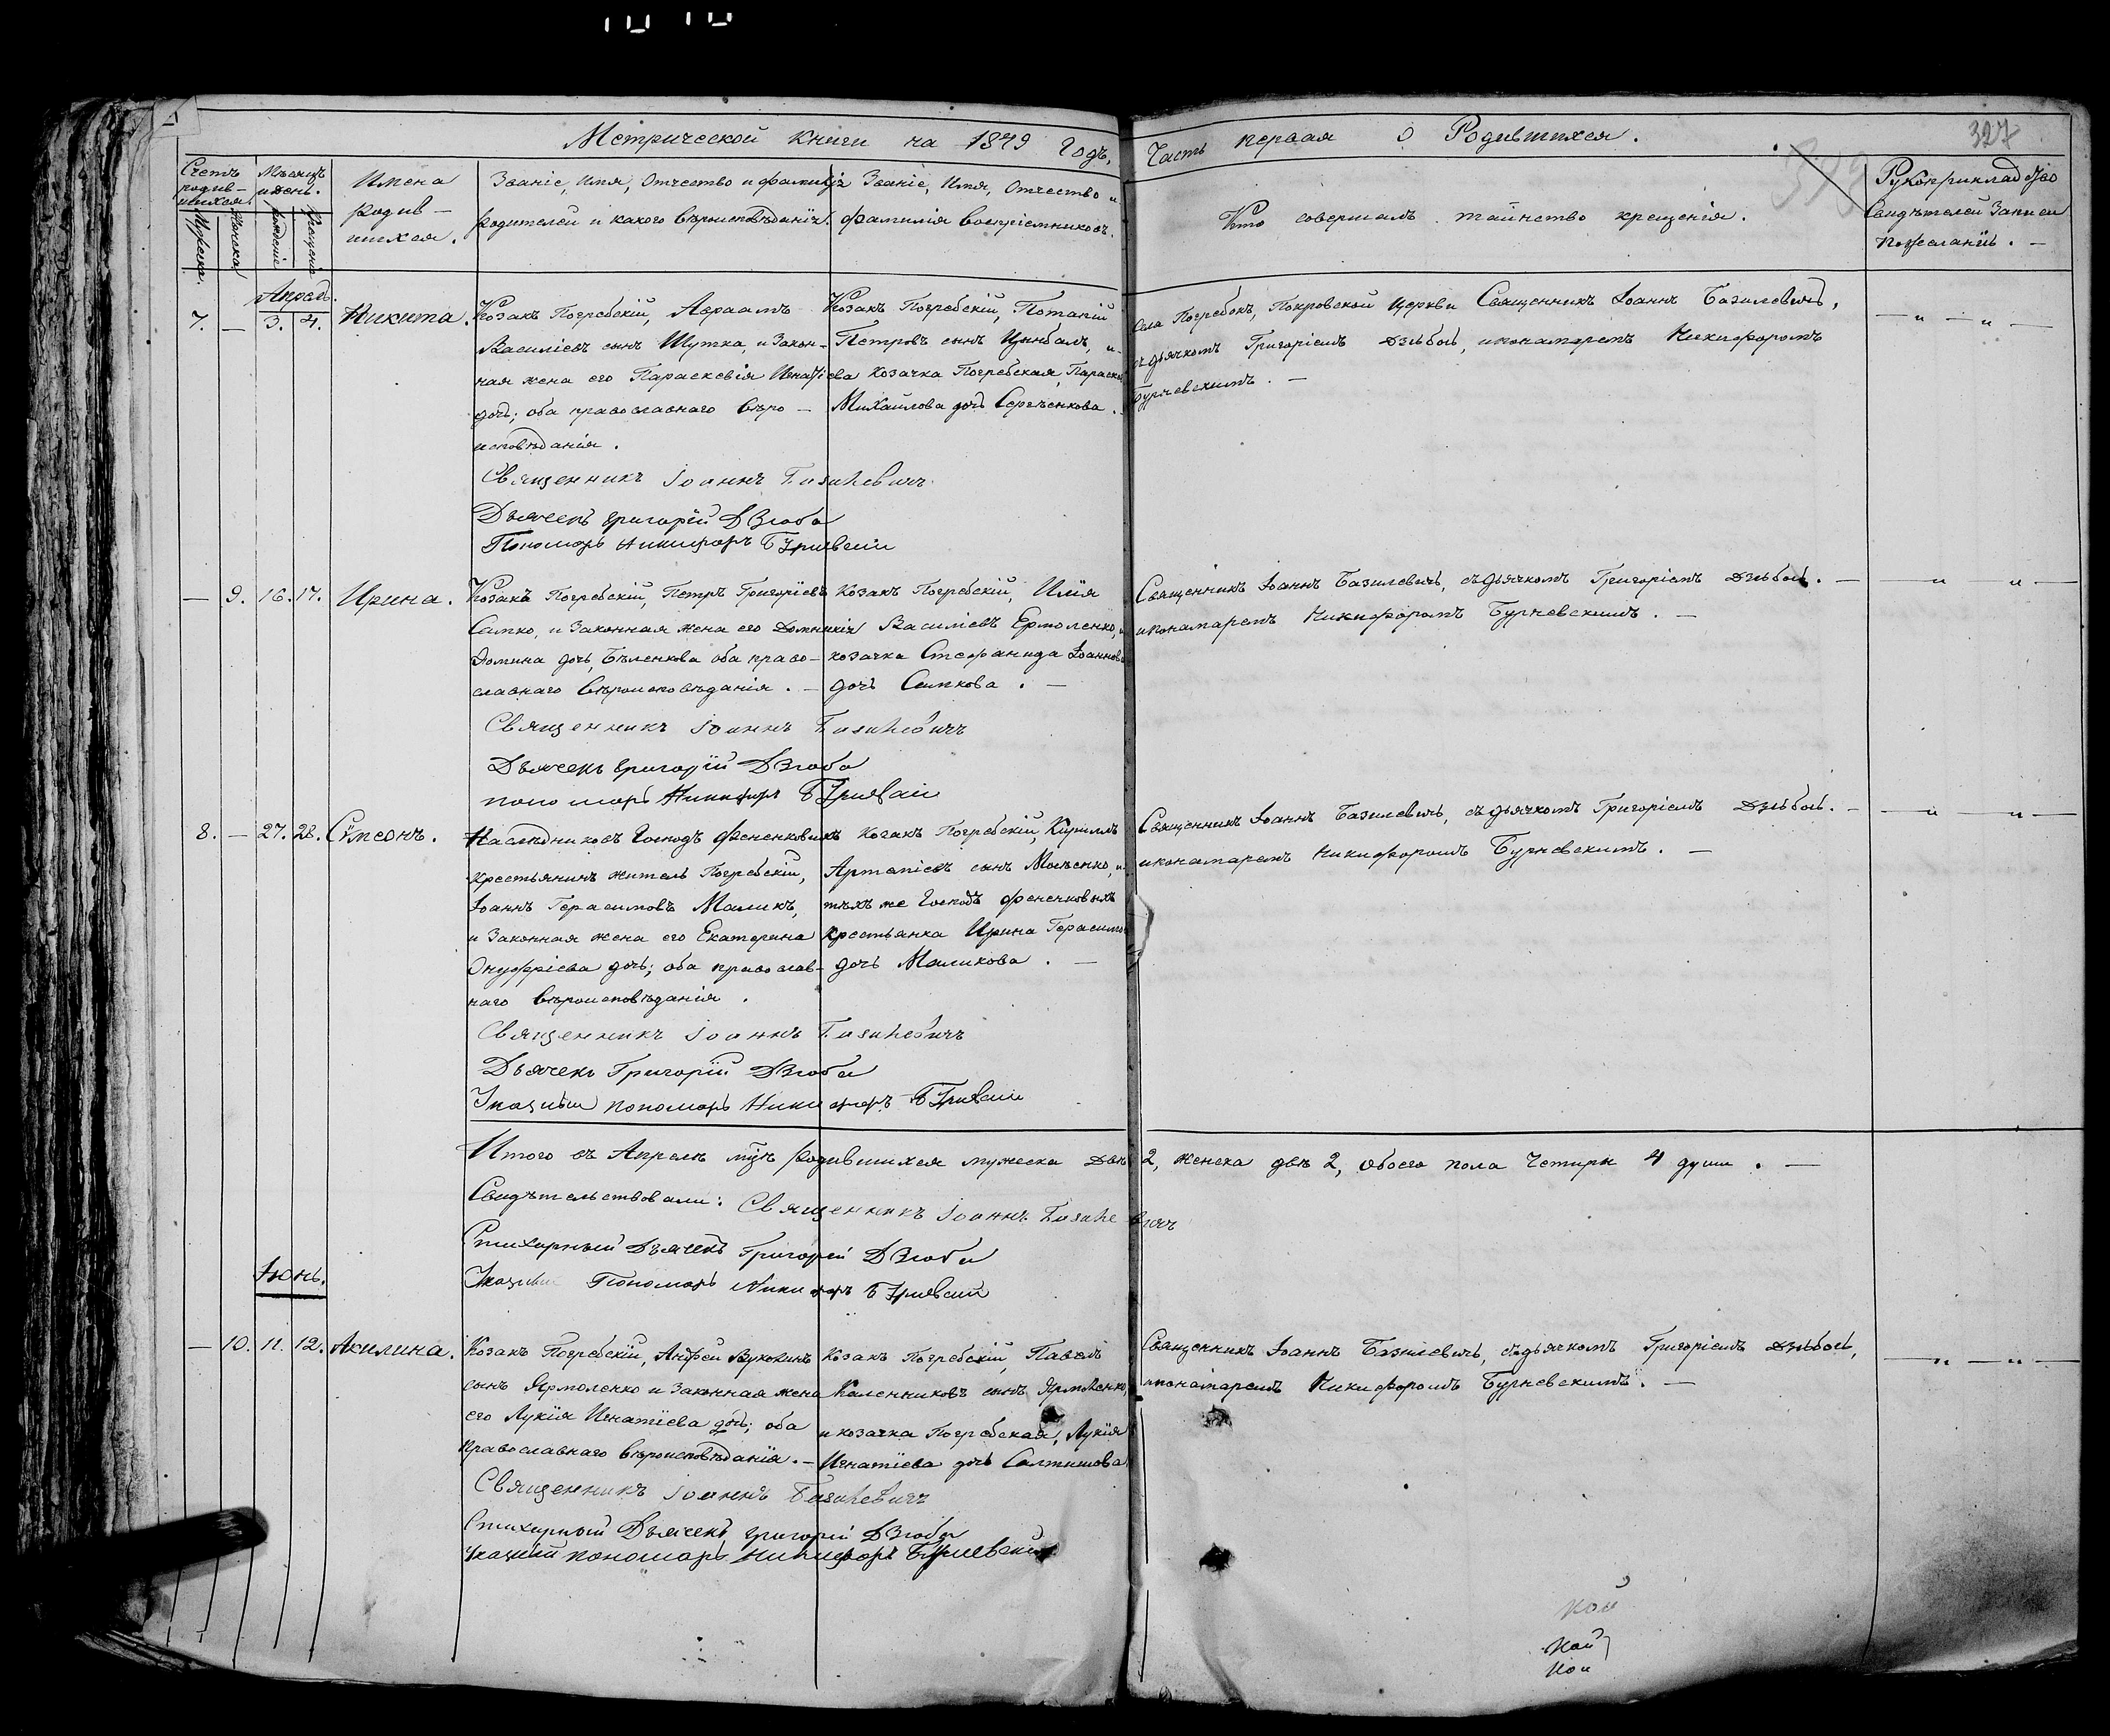 Метрической книги на 1849 годъ, Часть первая о Родившихся.
327
Счетъ родив-шихся.
Мужеска.
Женска.
Мѣсяцъ и день.
рожденіе
крещеніе
Имена
родив-
шихся.
Званіе, Имя, Отчество и фамилія
родителей и какого вѣроисповѣданія.
Званіе, Имя, Отчество и
фамилія воспріемниковъ.
Кто совершалъ таинство крещенія.
Рукоприкладство
Свидѣтелей Записи
по желанію. —
Апрель.
7. — 3. 4. Никита.
Козакъ Погребскій, Авраамъ
Василіевъ сынъ Шутка, и Закон-
ная жена его Параскевія Игнатіева
дочь; оба православнаго вѣро-
исповѣданія.
Козакъ Погребскій, Потапій
Петровъ сынъ Цимбалъ, и
козачка Погребская, Параск
Михайлова дочь Сергѣенкова.
Села Погребокъ, Покровской Церкви Священникъ Іоаннъ Базилевичъ,
съ дьячкомъ Григоріемъ Дзюбою, и понамаремъ Никифоромъ
Бурневскимъ. —
Священникъ Іоаннъ Базилевичъ
Дьячекъ Григорій Дзюба
Пономарь Никифоръ
— 9. 16. 17. Ирина.
Козакъ Погребскій, Петръ Григоріевъ
Сапко, и Законная жена его Домникія
Фомина дочь, Бѣленкова оба право-
славнаго вѣроисповѣданія. —
Козакъ Погребскій, Илія
Василіевъ Ермоленко, и
козачка Стефанида Іоаннова
дочь Сапкова. —
Священникъ Іоаннъ Базилевичъ, съ дьячкомъ Григоріемъ Дзюбою. —
и понамаремъ Никифоромъ Бурневскимъ. —
Священникъ Іоаннъ Базилевичъ
Дьячекъ Григорій Дзюба
пономарь Никифоръ
8. — 27. 28. Сѵмеонъ.
Наслѣдниковъ Господъ Фененковыхъ
крестьянинъ житель Погребскій,
Іоаннъ Герасимовъ Маликъ,
и Законная жена его Екатерина
Онуфріева дочь; оба православ-
наго вѣроисповѣданія.
Козакъ Погребскій, Кириллъ
сынъ Мосѣенко, и
тѣхъ же Господъ Фененковыхъ
крестьянка Ирина Герасимо
дочь Маликова. —
Священникъ Іоаннъ Базилевичъ, съ дьячкомъ Григоріемъ Дзюбою. —
и понамаремъ Никифоромъ Бурневскимъ. —
Священникъ Іоаннъ Базилевичъ
Дьячекъ Григорій Дзюба
Указный пономарь Никифоръ
Итого въ Апрелѣ родившихся мужеска два 2, женска двѣ 2, обоего пола Четыри 4 души. —
Свидѣтельствовали: Священникъ Іоаннъ Базилевичъ
Стихарный Дьячекъ Григорій Дзюба
Указный Пономарь Никифоръ
Іюнь.
— 10. 11. 12. Акилина.
Козакъ Погребскій, Андрей
сынъ Ярмоленко и Законная жена
его Лукія Игнатіева дочь; оба
православнаго вѣроисповѣданія. —
Козакъ Погребскій, Павелъ
Каленниковъ сынъ Ярмоленко,
и козачка Погребская, Лукія
Игнатіева дочь
Священникъ Іоаннъ Базилевичъ, съ дьячкомъ Григоріемъ Дзюбою,
и понамаремъ Никифоромъ Бурневскимъ. —
Священникъ Іоаннъ Базилевичъ
Стихарный Дьячекъ Григорій Дзюба
Указный пономарь Никифоръ Бурневский
кой
кой
кой